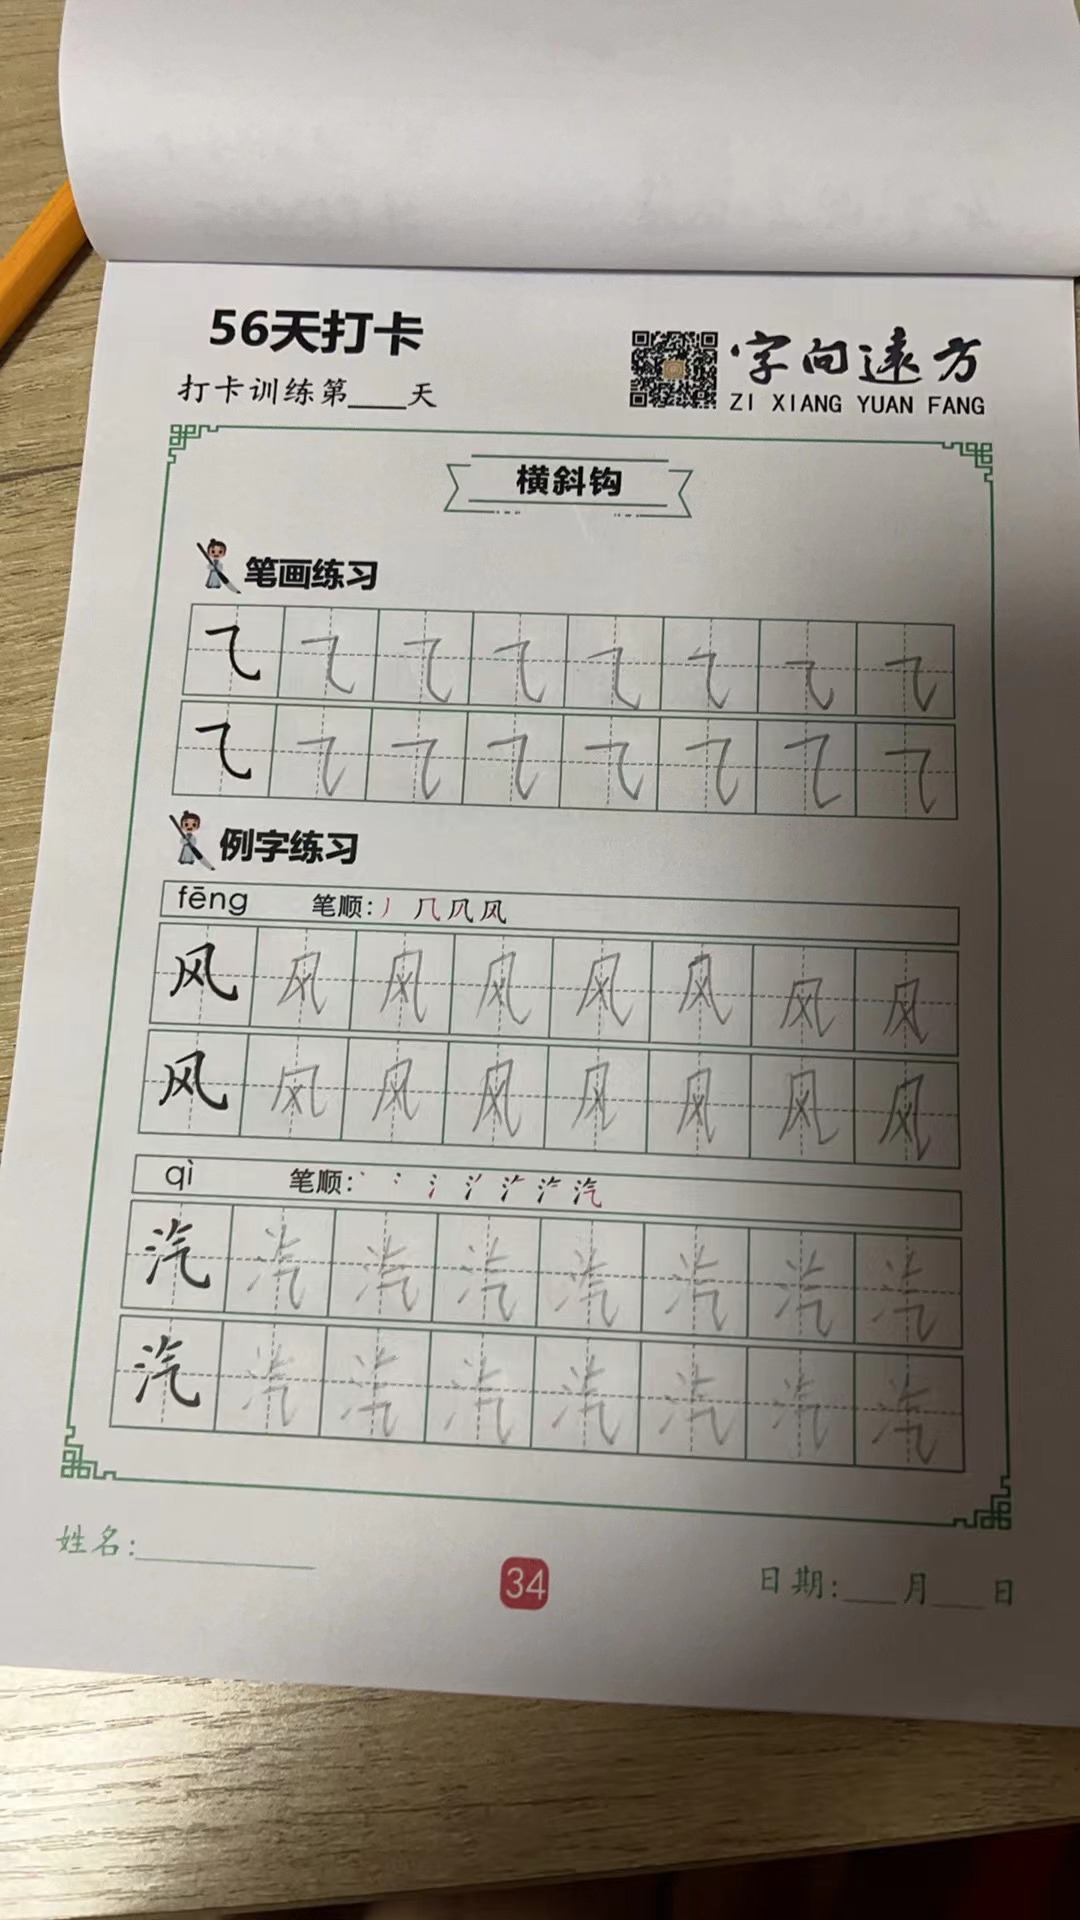 56天打卡
打卡训练第____天
字向远方
ZI XIANG YUAN FANG
横斜钩
笔画练习
⺄ ⺄ ⺄ ⺄ ⺄ ⺄ ⺄ ⺄
⺄ ⺄ ⺄ ⺄ ⺄ ⺄ ⺄ ⺄
例字练习
fēng 笔顺: 丿 几 凨 风
风 风 风 风 风 风 风 风
风 风 风 风 风 风 风 风
qì 笔顺: 汽
汽 汽 汽 汽 汽 汽 汽 汽
汽 汽 汽 汽 汽 汽 汽 汽
姓名:__________
34
日期:___月___日